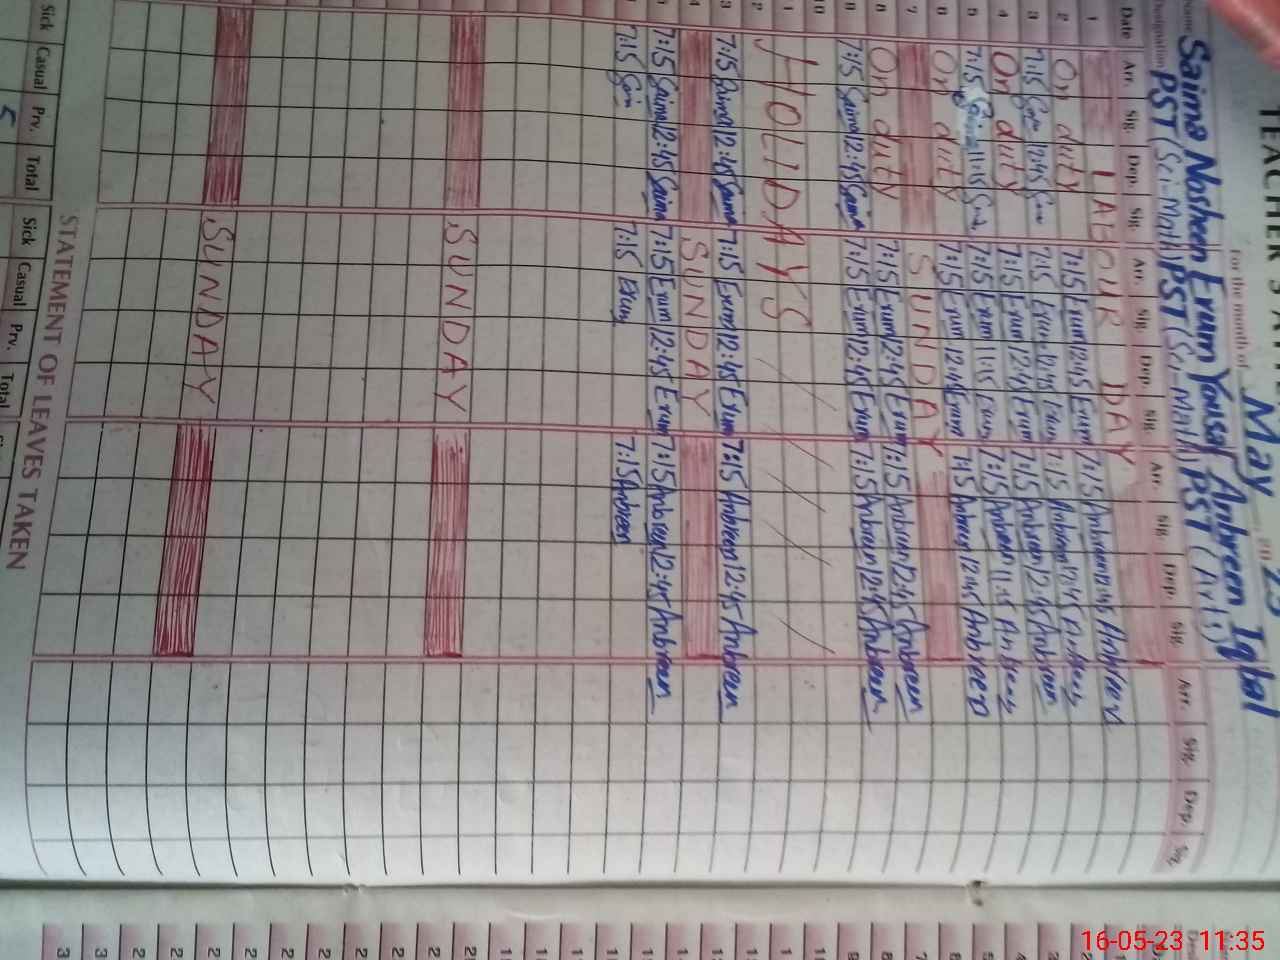 TEACHER'S
For the month of May 2023
Name Saima Nosheen Erum Yousaf Anbreen Iqbal
Designation PST (Sci-Math) PST (Sci-Math) PST (Arts)
Date Arr. Sig. Dep. Sig. Arr. Sig. Dep. Sig. Arr. Sig. Dep. Sig. Arr. Sig. Dep. Sig.
1 LABOUR DAY
2 On duty 7:15 Erum 12:45 Erum 7:15 Anbreen 12:45 Anbreen
3 7:15 12:45 7:15 Erum 12:45 Erum 7:15 Anbreen 12:45
4 On duty 7:15 Erum 12:45 Erum 7:15 Anbreen 12:45 Anbreen
5 7:15 Saima 11:15 7:15 Erum 11:15 Erum 7:15 Anbreen 11:15
6 On duty 7:15 Erum 12:45 Erum 7:15 Anbreen 12:45 Anbreen
7 SUNDAY
8 On duty 7:15 Erum 12:45 Erum 7:15 Anbreen 12:45 Anbreen
9 7:15 Saima 12:45 Saima 7:15 Erum 12:45 Erum 7:15 Anbreen 12:45 Anbreen
10
1 HOLIDAYS
2
3 7:15 Saima 12:45 Saima 7:15 Erum 12:45 Erum 7:15 Anbreen 12:45 Anbreen
4 SUNDAY
7:15 Saima 12:45 Saima 7:15 Erum 12:45 Erum 7:15 Anbreen 12:45 Anbreen
7:15 7:15 Erum 7:15 Anbreen
SUNDAY
SUNDAY
STATEMENT OF LEAVES TAKEN
Sick Casual Prv. Total Sick Casual Prv. Total
5
16-05-23 11:35